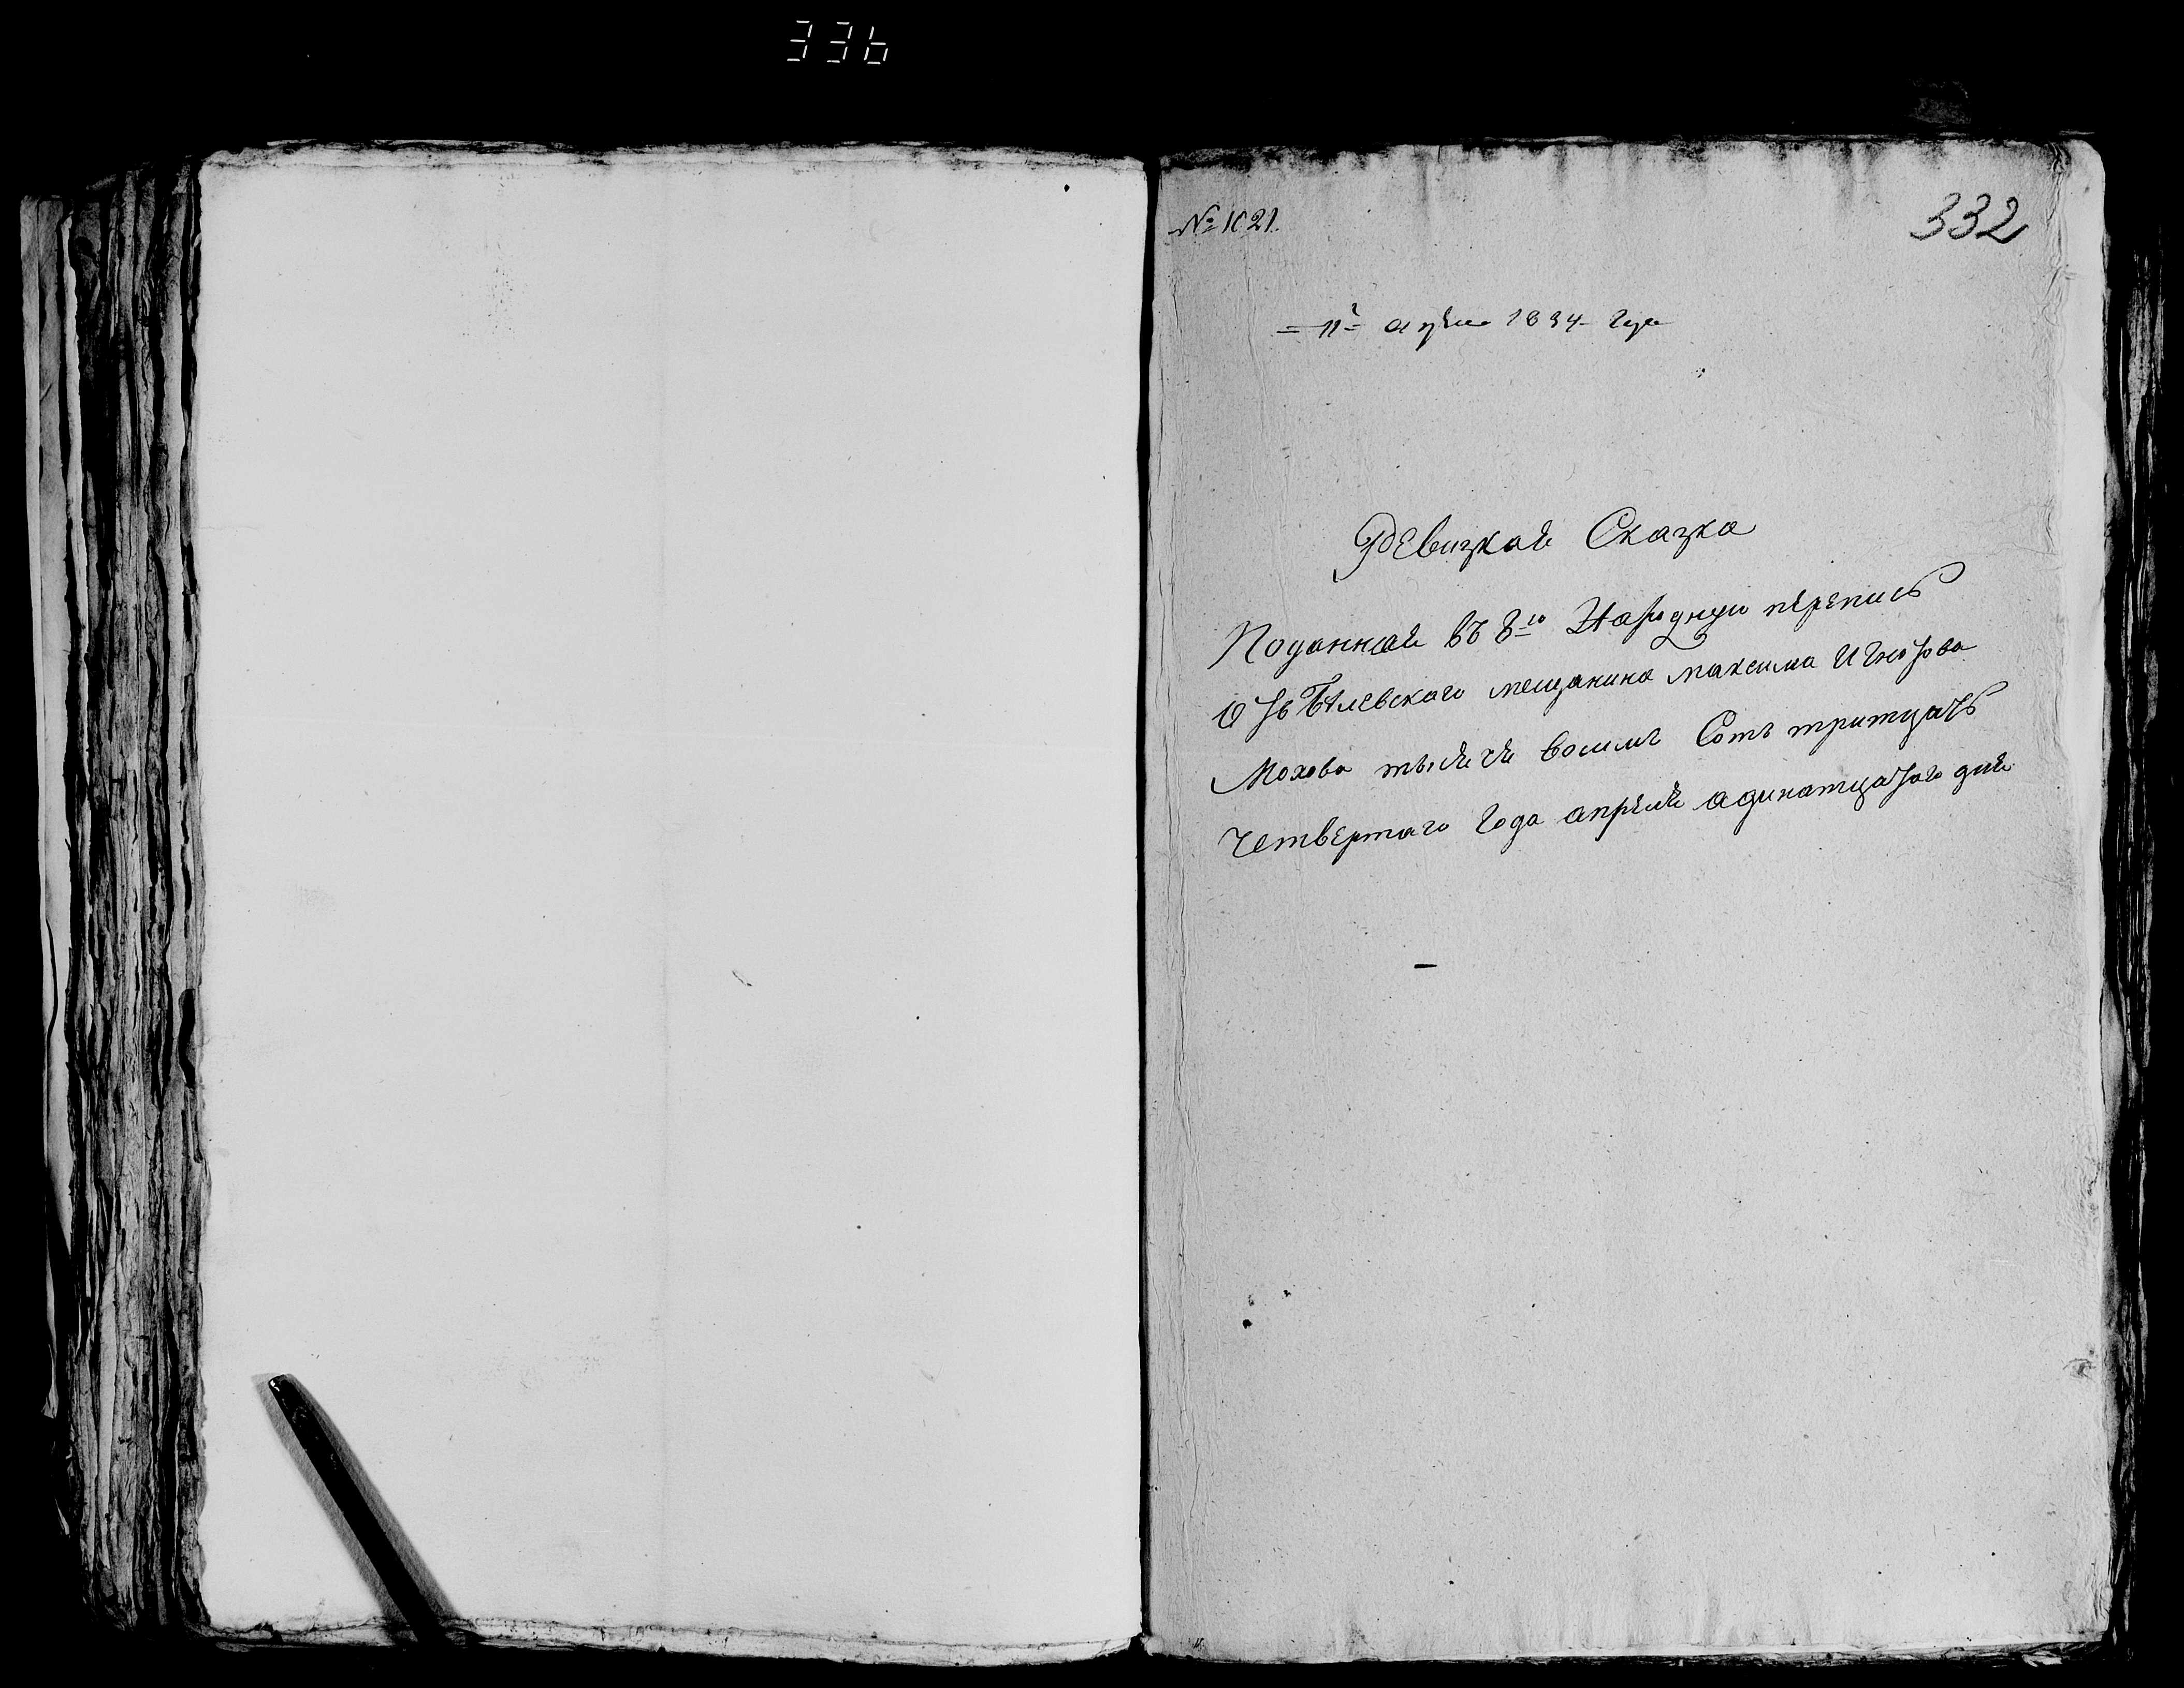 336
№ 1021.
332
= 11г= апреля 1834 года
Ревизкая Сказка
Поданная въ 8ю Народную перепись
отъ Белевского мещанина максима Игнатова
Мохова тысяча восимъ Сотъ тритцать
Четвертаго Года апреля адинатцатого дня